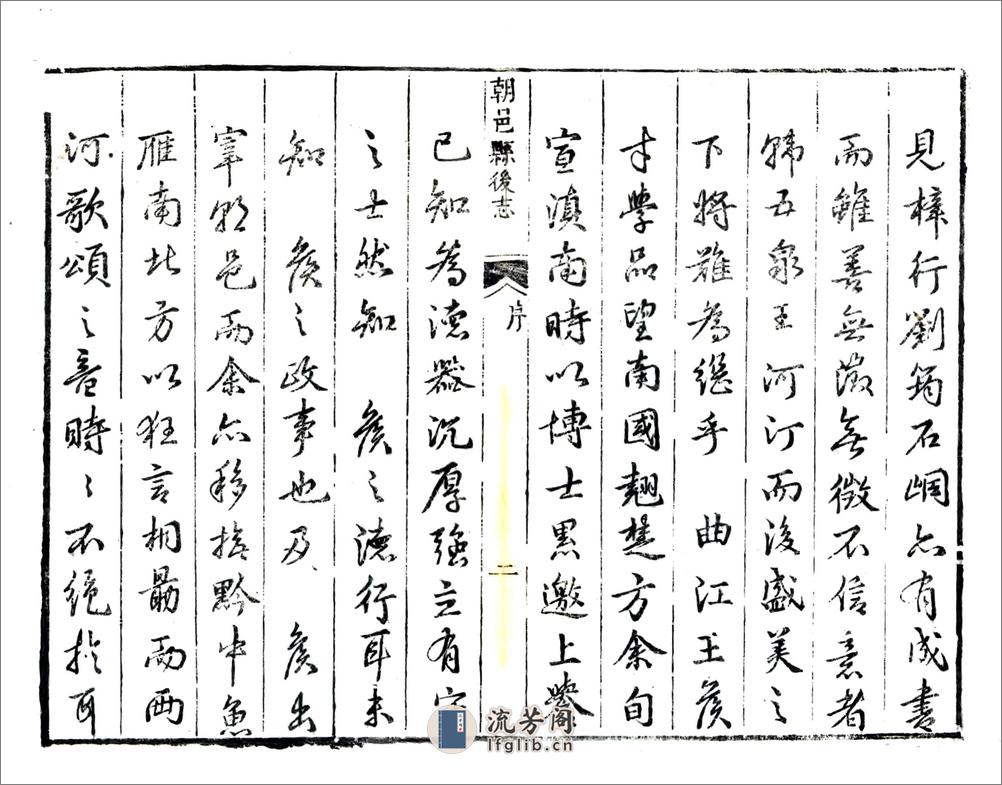 見梓行劉筠石峒亦有成書
而雖善無徵無徵不信意者
韓五泉王河汀而後盛美之
下將難為繼乎　曲江王侯
才學品望南國翹楚方余旬
宣滇南時以博士黑邀上
已知為德器沉厚強立有
朝邑縣後志
序
二
之士然知　侯之德行耳未
知　侯之政事也及　侯出
宰朝邑而余亦移撫黔中魚
雁南北方以狂言相勗而西
河歌頌之音時〻不絕於耳
流芳阁
lfglib.cn